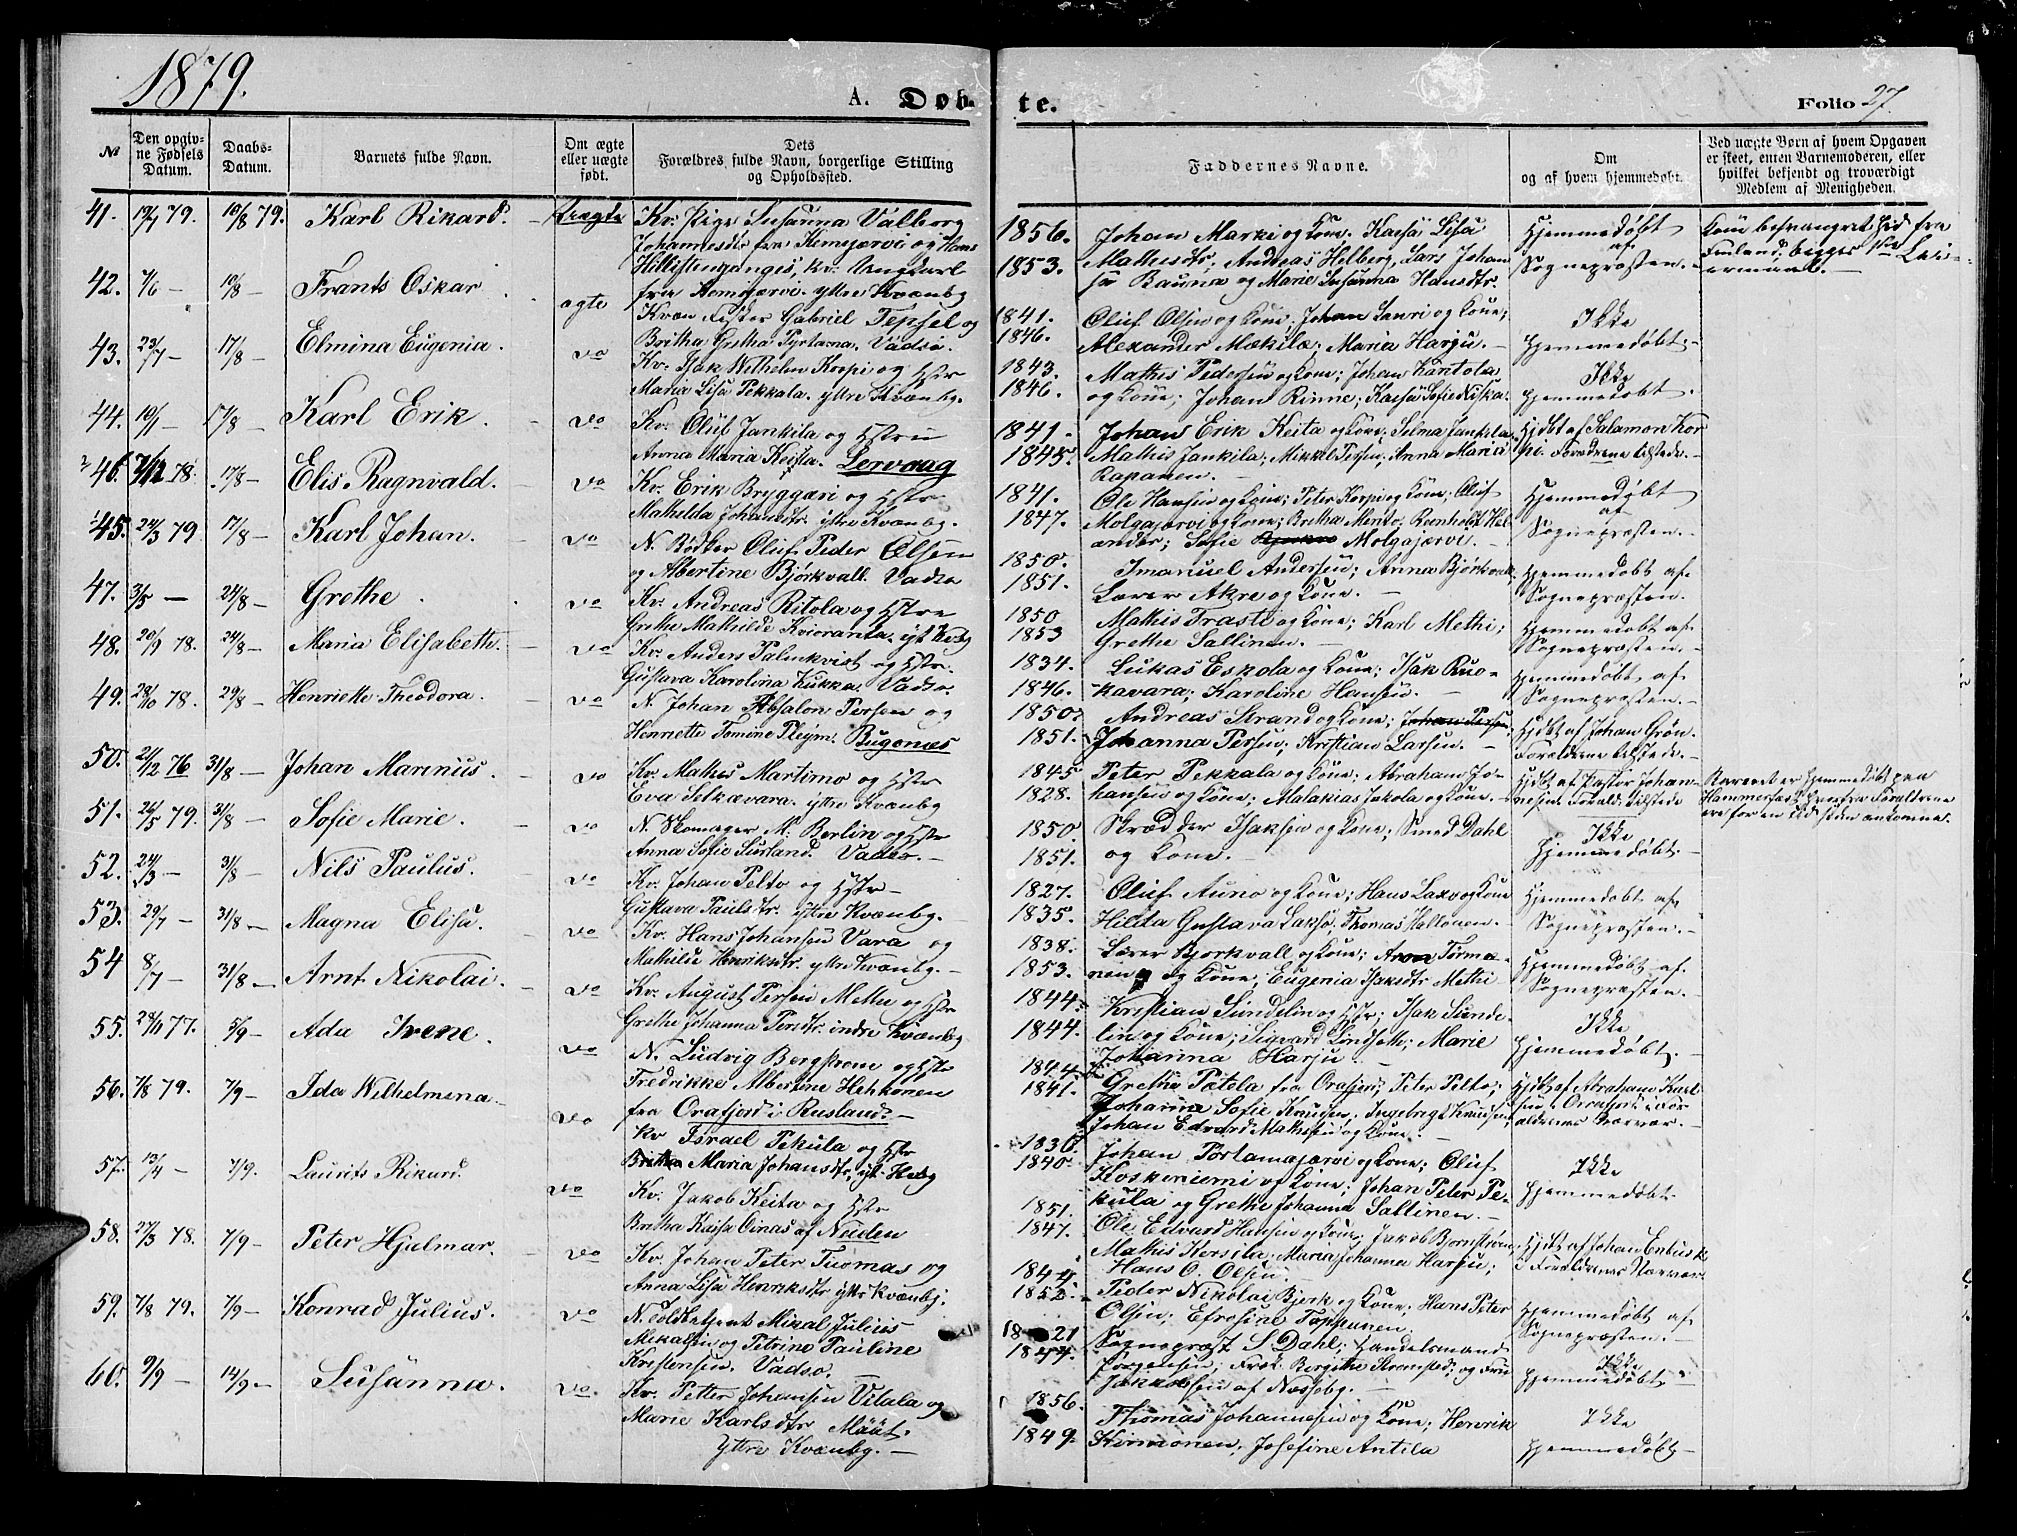 1879.
A. Døb-
te.
Folio 27
№
Den opgivne Fødsels Datum.
Daabs-Datum.
Barnets fulde Navn.
Om ægte eller uægte født.
Dets Forældres fulde Navn, borgerlige Stilling og Opholdssted.
Faddernes Navne.
Om og af hvem hjemmedøbt.
Ved uægte Børn af hvem Opgaven er skeet, enten Barnemoderen, eller hvilket bekjendt og troværdigt Medlem af Menigheden.
41. 79. 10/8 79. Karl Rikard. Uægte
Kv. Pige Susanna Valborg
Johannesdtr fra Kemijærvi og Hans
1856. Johan Marki og Kone. Kaisa Lisa
1853. Mathisdtr; Andreas Helberg, Lars Johan
Bauna og Marie Susanna Hansdtr.
Hjemmedøbt af Sognepræsten.
42. 7/6 – 10/8 – Frants Oskar. ægte
Kvæn Fisker Gabriel Tepsel og
Britha Gretha Vadsø.
1841. Oluf Olsen og Kone; Johan Lauri og Kone;
1846. Alexander Mækilæ; Maria Harju.
Ikke Hjemmedøbt.
43. 23/7 – 17/8 – Elmina Eugenia. do
Kv. Isak Wilhelm Korpi og Hstr
Maria Lisa Pekkala. yttre Kvænbg.
1843. Mathis Pedersen og Kone; Johan Karitola
1846. og Kone; Johan Rinne; Kaisa Sofie Niska.
Ikke Hjemmedøbt.
44. 17/8 – Karl Erik. do
Kv. Oluf Jankila og Hstru
Anna Maria Keista. Lervaag
1841. Johan Erik Keita og Kone. Selma Jankila
1845. Mathis Jankila; Mikkel Persen; Anna Maria
Rapanen.
Hjdbt af Salamon Korpi. Forældrene tilstede.
46. 7/12 78. 17/8 – Elis Ragnvald. do
Kv. Erik Bryggari og Hstr
Mathilda Johansdtr. yttre Kvænbg.
1841. Ole Hansen og Kone; Peter Korpi og Kone; Oluf
1847. Molgajærvi og Kone; Bretha Mento,
Sofie Molgajærvi.
Hjemmedøbt af Sognepræsten.
45. 24/3 79. 17/8 – Karl Johan. do
N. Bødker Oluf Peder Olsen
og Albertine Bjørkvall. Vadsø
1850. Imanuel Andersen; Anna Bjørkvall
1851. Lærer Akre og Kone.
Hjemmedøbt af Sognepræsten.
47. 3/5 – 24/8 – Grethe. do
Kv. Andreas Ritola og Hstru
Grethe Mathilde Kvioranta. yt. Kvbg
1850 Mathis Trasti og Kone; Karl Methi;
1853 Grethe Sallinen.
Hjemmedøbt af Sognepræsten.
48. 20/9 78. 24/8 – Maria Elisabeth. do
Kv. Anders Palmkvist og Hstr.
Gustava Karolina Kukka. Vadsø.
1834. Lukas Eskola og Kone; Isak Ruo-
1846. kavara; Karoline Hansen.
Hjemmedøbt af Sognepræsten.
49. 28/10 78. 29/8 – Henriette Theodora. do
N. Johan Absalon Persen og
Henriette Tomine Pleym. Bugønæs
1850. Andreas Strand og Kone; Johan Persen
1851. Johanna Persen; Kristian Larsen.
Hjdbt af Johan Grøn. Forældrene tilstede.
50. 21/12 76 31/8 – Johan Marinus. do
Kv. Mathis Martimo og Hstr
Eva Selkævara. yttre Kvænbg
1845 Peter Pekkala og Kone; Abraham Jo-
1828. hansen og Kone; Malakias Jokola og Kone.
Hjdbt af Pastor Johannesen. Foræld. tilstede
Barnet er hjemmedøbt paa
Hammerfest, hvorfra Forældrene
ere for en Tid siden ankomne.
51. 26/5 79. 31/8 – Sofie Marie. do
N. Skomager M. Berlin og Hstr
Anna Sofie Surland. Vadsø.
1850 Skrædder Isaksen og Kone; Smed Dahl
1851. og Kone.
Ikke Hjemmedøbt.
52. 24/3 – 31/8 – Nils Paulus. do
Kv. Johan Pelto og Hstr
Gustava Paulsdtr. yttre Kvænbg.
1827. Oluf Auno og Kone; Hans Laxo og Kone
1835. Hilda Gustava Laksø; Thomas Haltonen.
Hjemmedøbt af Sognepræsten.
53. 29/7 – 31/8 – Magna Elisa. do
Kv. Hans Johansen Vara og
Mathilde Henriksdtr. yttre Kvænbg.
1838. Lærer Bjorkvall og Kone; Aron Torma-
1853. nen og Kone; Eugenia Isaksdtr Methi
Hjemmedøbt af Sognepræsten.
54 8/7 – 31/8 – Arnt Nikolai. do
Kv. August Persen Methi og Hstr
Grethe Johanna Persdtr. indre Kvænbg
1844. Kristian Sundelin og Hstr; Isak Sunde-
1844. lin og Kone; Sigvard Lindseth; Marie
Johanna Harju.
Ikke Hjemmedøbt.
55. 77. 5/9 – Ada Irene. do
N. Ludvig Bergstrøm og Hstr
Fredrikke Albertine Heikkonen
fra Orafjord i Rusland.
1844. Grethe Patela fra Orafjord; Peter Pelto;
1841. Johanna Sofie Knudsen. Ingebrigt Knudsen;
Johan Edvard Mathisen og Kone.
Hjdbt af Abraham Karlsen i Orafjord i Forældrenes Nærvær.
56. 7/8 79. 7/9 – Ida Wilhelmena. do
Kv Israel Pekula og Hstr
Britha Maria Johansdtr. yt. Kvbg
1836. Johan Portamojærvi og Kone; Oluf
1840. Koskeniemi og Kone; Johan Peter Pe-
kula og Grethe Johanna Sallinen.
Ikke Hjemmedøbt
57. 13/4 – 7/9. Laurits Rikard. do
Kv. Jakob Keita og Hstr
Britha Kaisa Oinas af Næiden
1851. Ole Edvard Hansen og Kone, Jakob Bjørnstrøm,
1847. Mathis Kersila, Maria Johanna Harju;
Hans O. Olsen.
Hjdbt af Johan i Forældrenes Nærvær
58. 27/3 78. 7/9 – Peter Hjelmar. do
Kv. Johan Peter Tuomas og
Anna Lisa Henriksdtr yttre Kvænbg.
1844. Peder Nikolai Bjerk og Kone. Hans Peter
1852. Olsen, Efrosine Tappunen.
Hjemmedøbt af Sognepræsten.
59. 7/8 79. 7/9 – Konrad Julius. do
N. Toldbetjent Mikal Julius
Mikalsen og Petrine Pauline
Kristensen. Vadsø.
1821 Sognepræst S Dahl; Handelsmand
1844. Jørgensen; Frøk. Bergithe Strømsted; og Frue
Jakobsen af Næsseby.
Ikke Hjemmedøbt
60. 9/9 – 14/9 – Susanna. do.
Kv. Petter Johansen Vitala og
Marie Karlsdtr Määt.
Yttre Kvænbg.
1856. Thomas Johannesen og Kone; Henrik
1849. Kinnonen; Josefine Antila
Ikke Hjemmedøbt